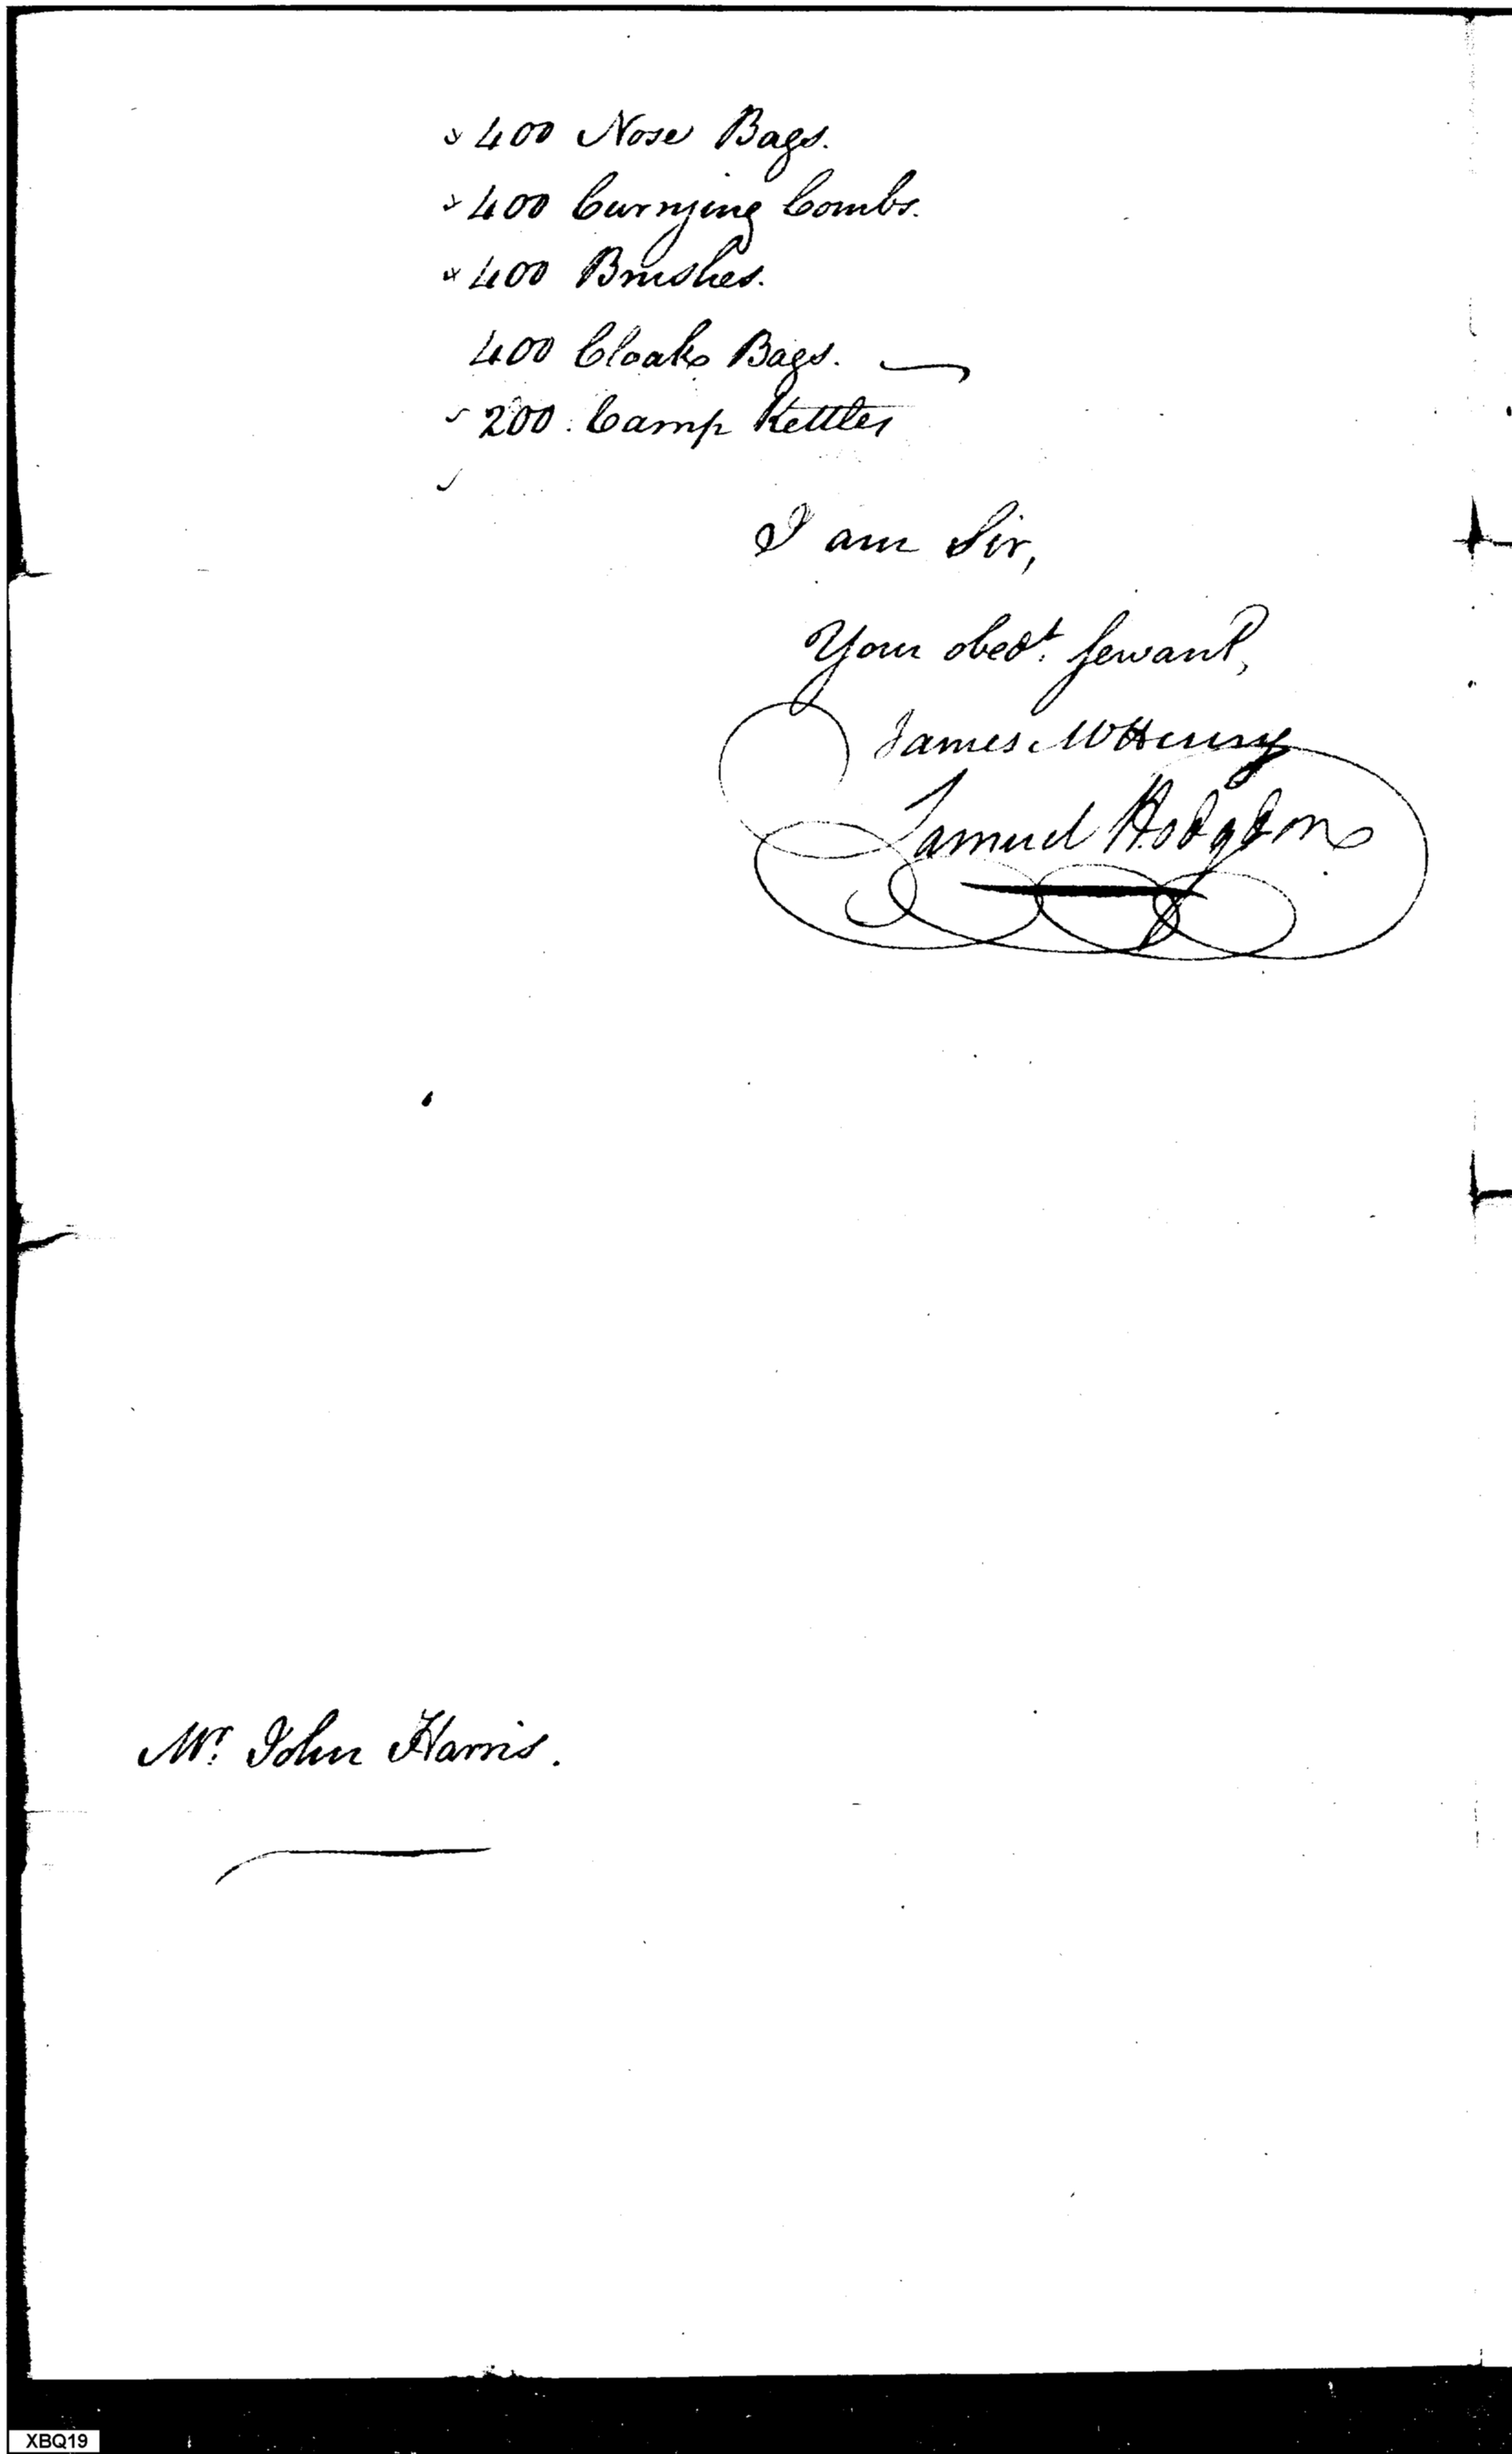 400 Nose Bags.
400 Currying Combs.
400 Brushes.
400 Cloak Bags.
200. Camp Kettles
I am Sir,
Your obedt. servant,
James McHenry
Samuel Hodgdon
Mr. John Harris.
XBQ19